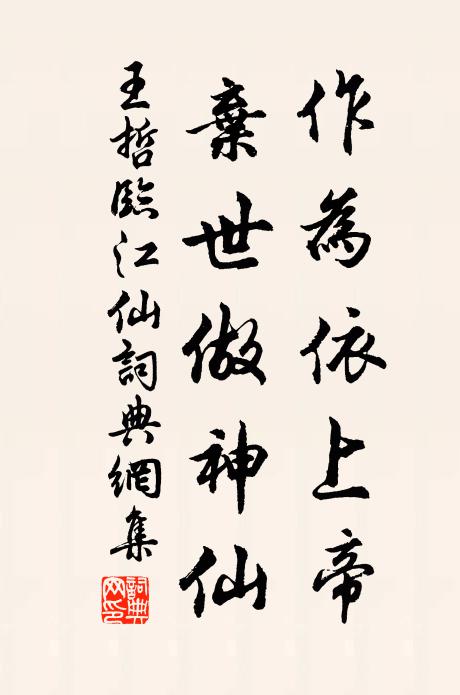 作為依上帝
棄世做神仙
王哲臨江仙詞典網集
詞典網印